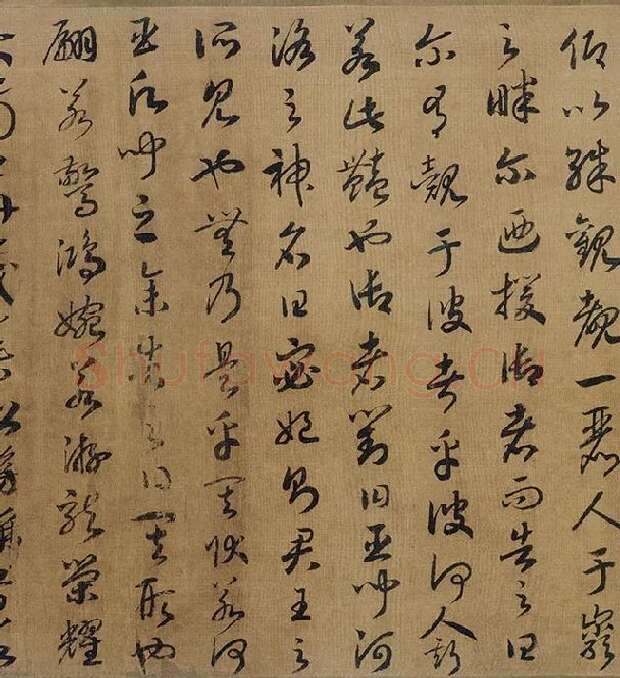 仰以殊觀覩一麗人于巖
之畔尔迺援御者而告之曰
尔有覿于彼者乎彼何人斯
若此豔也御者對曰臣聞河
洛之神名曰宓妃則君王之
所見也無乃是乎其狀若何
臣願聞之余告之曰其形也
翩若驚鴻婉若游龍榮耀
Shufawang.Cn